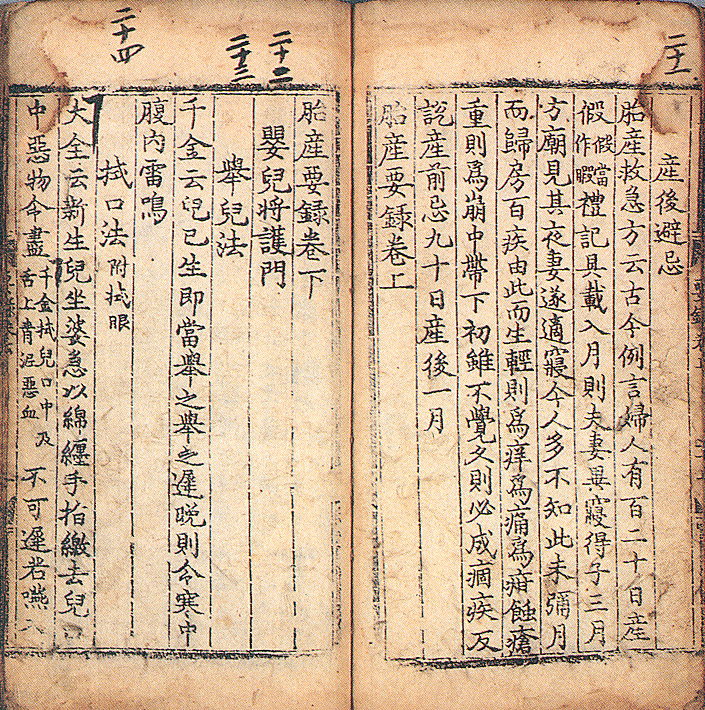 二十一
産後避忌
胎産救急方云古今例言婦人有百二十日産
假假當作暇禮記具載入月則夫妻異寢得子三月
方廟見其夜妻遂適寢今人多不知此未彌月
而歸房百疾由此而生輕則爲痒爲痛爲疳蝕瘡
重則爲崩中帶下初雖不覺久則必成痼疾及
說産前忌九十日産後一月
胎産要錄卷上
二十二
二十三
二十四
胎産要錄卷下
嬰兒將護門
擧兒法
千金云兒已生即當擧之擧之遲晩則令寒中
腹內雷鳴
拭口法附拭眼
大全云新生兒坐婆急以綿纏手指繳去兒口
中惡物令盡千金拭兒口中及舌上青泥惡血不可遲若嚥入